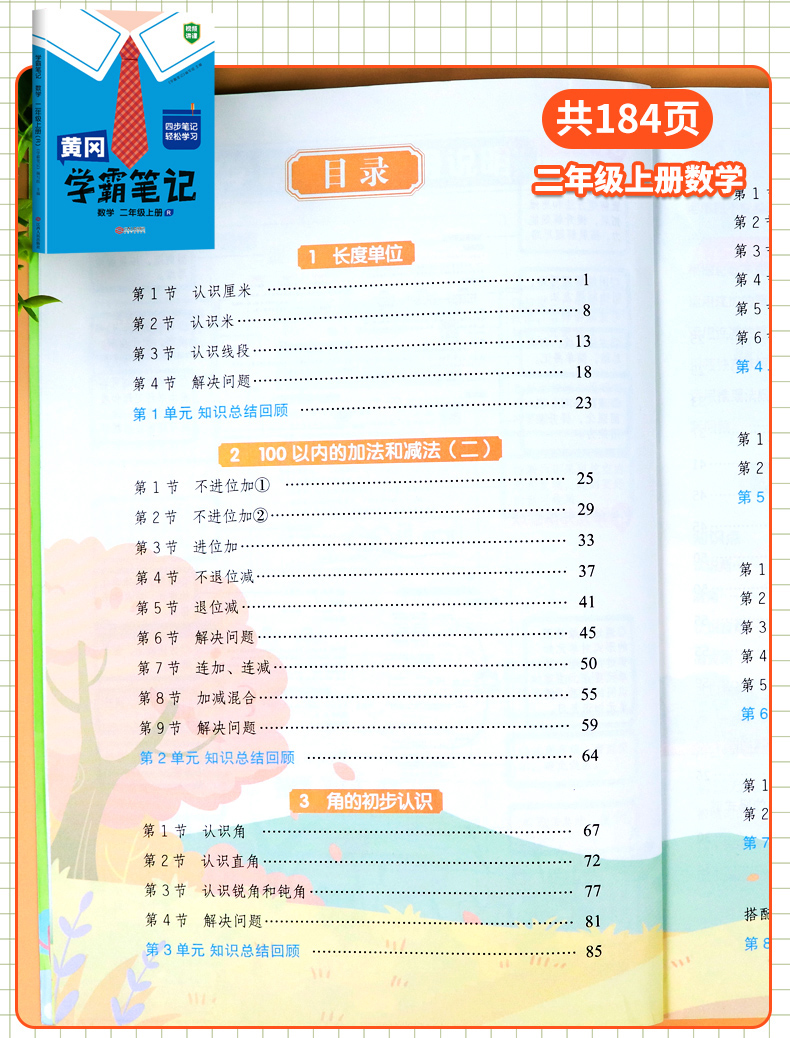 视频
讲课
四步笔记
轻松学习
黄冈
学霸笔记
数学 二年级上册 R
共184页
二年级上册数学
目录
1 长度单位
第1节 认识厘米 1
第2节 认识米 8
第3节 认识线段 13
第4节 解决问题 18
第1单元 知识总结回顾 23
2 100以内的加法和减法（二）
第1节 不进位加① 25
第2节 不进位加② 29
第3节 进位加 33
第4节 不退位减 37
第5节 退位减 41
第6节 解决问题 45
第7节 连加、连减 50
第8节 加减混合 55
第9节 解决问题 59
第2单元 知识总结回顾 64
3 角的初步认识
第1节 认识角 67
第2节 认识直角 72
第3节 认识锐角和钝角 77
第4节 解决问题 81
第3单元 知识总结回顾 85
第1
第2
第3
第4
第5
第6
第4
第1
第2
第5
第1
第2
第3
第4
第5
第6
第1
第2
第7
搭配
第8